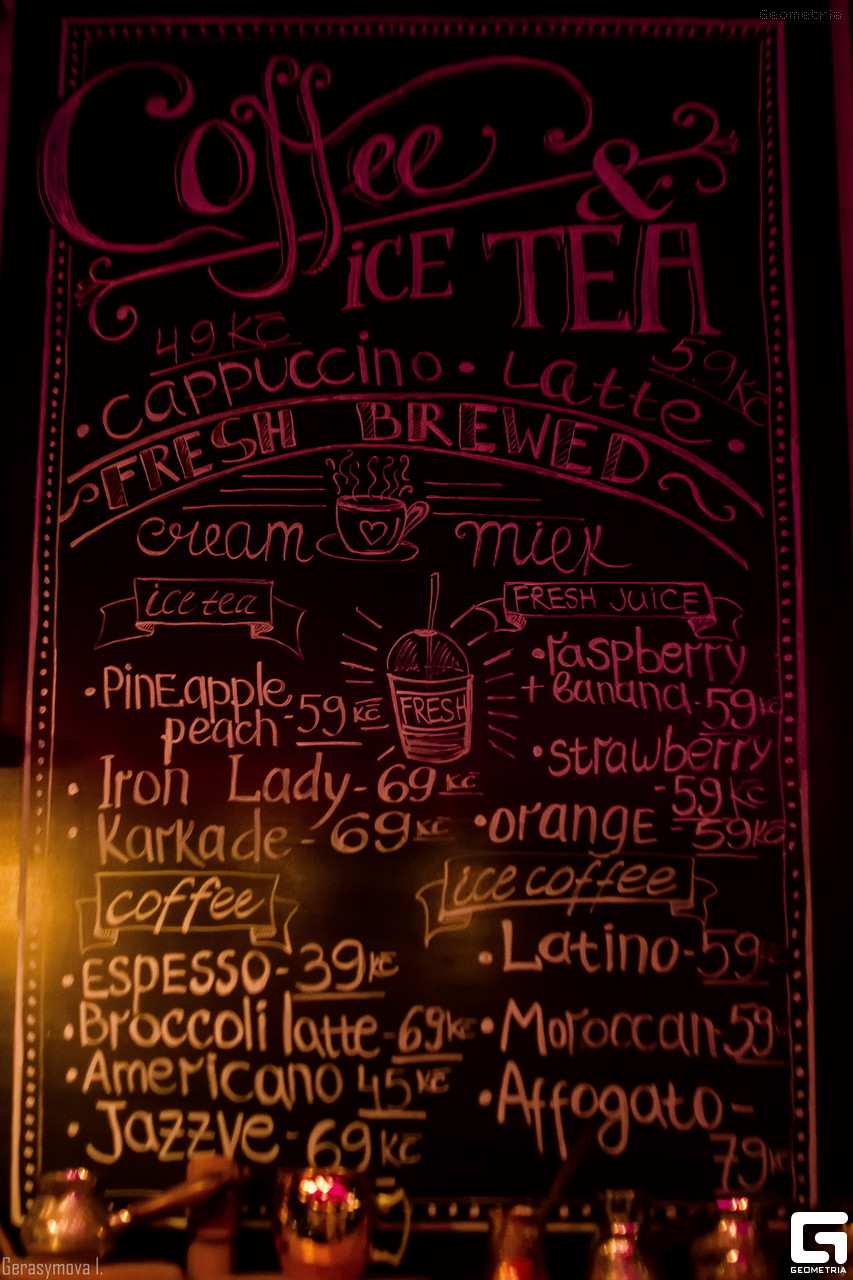 Geometria
Coffee &
iCE TEA
49 Kč 59 Kč
• Cappuccino • Latte •
FRESH BREWED
cream milk
ice tea
• PinEapple
peach - 59 Kč
• Iron Lady - 69 Kč
• Karkade - 69 Kč
FRESH
FRESH JUICE
• raspberry
+ banana - 59 Kč
• strawberry
- 59 Kč
• orangE - 59 Kč
coffee
• ESPESSO - 39 Kč
• Broccoli latte - 69 Kč
• Americano 45 Kč
• Jazzve - 69 Kč
ice coffee
• Latino - 59
• Moroccan 59
• Affogato -
79 Kč
Gerasymova I.
GEOMETRIA